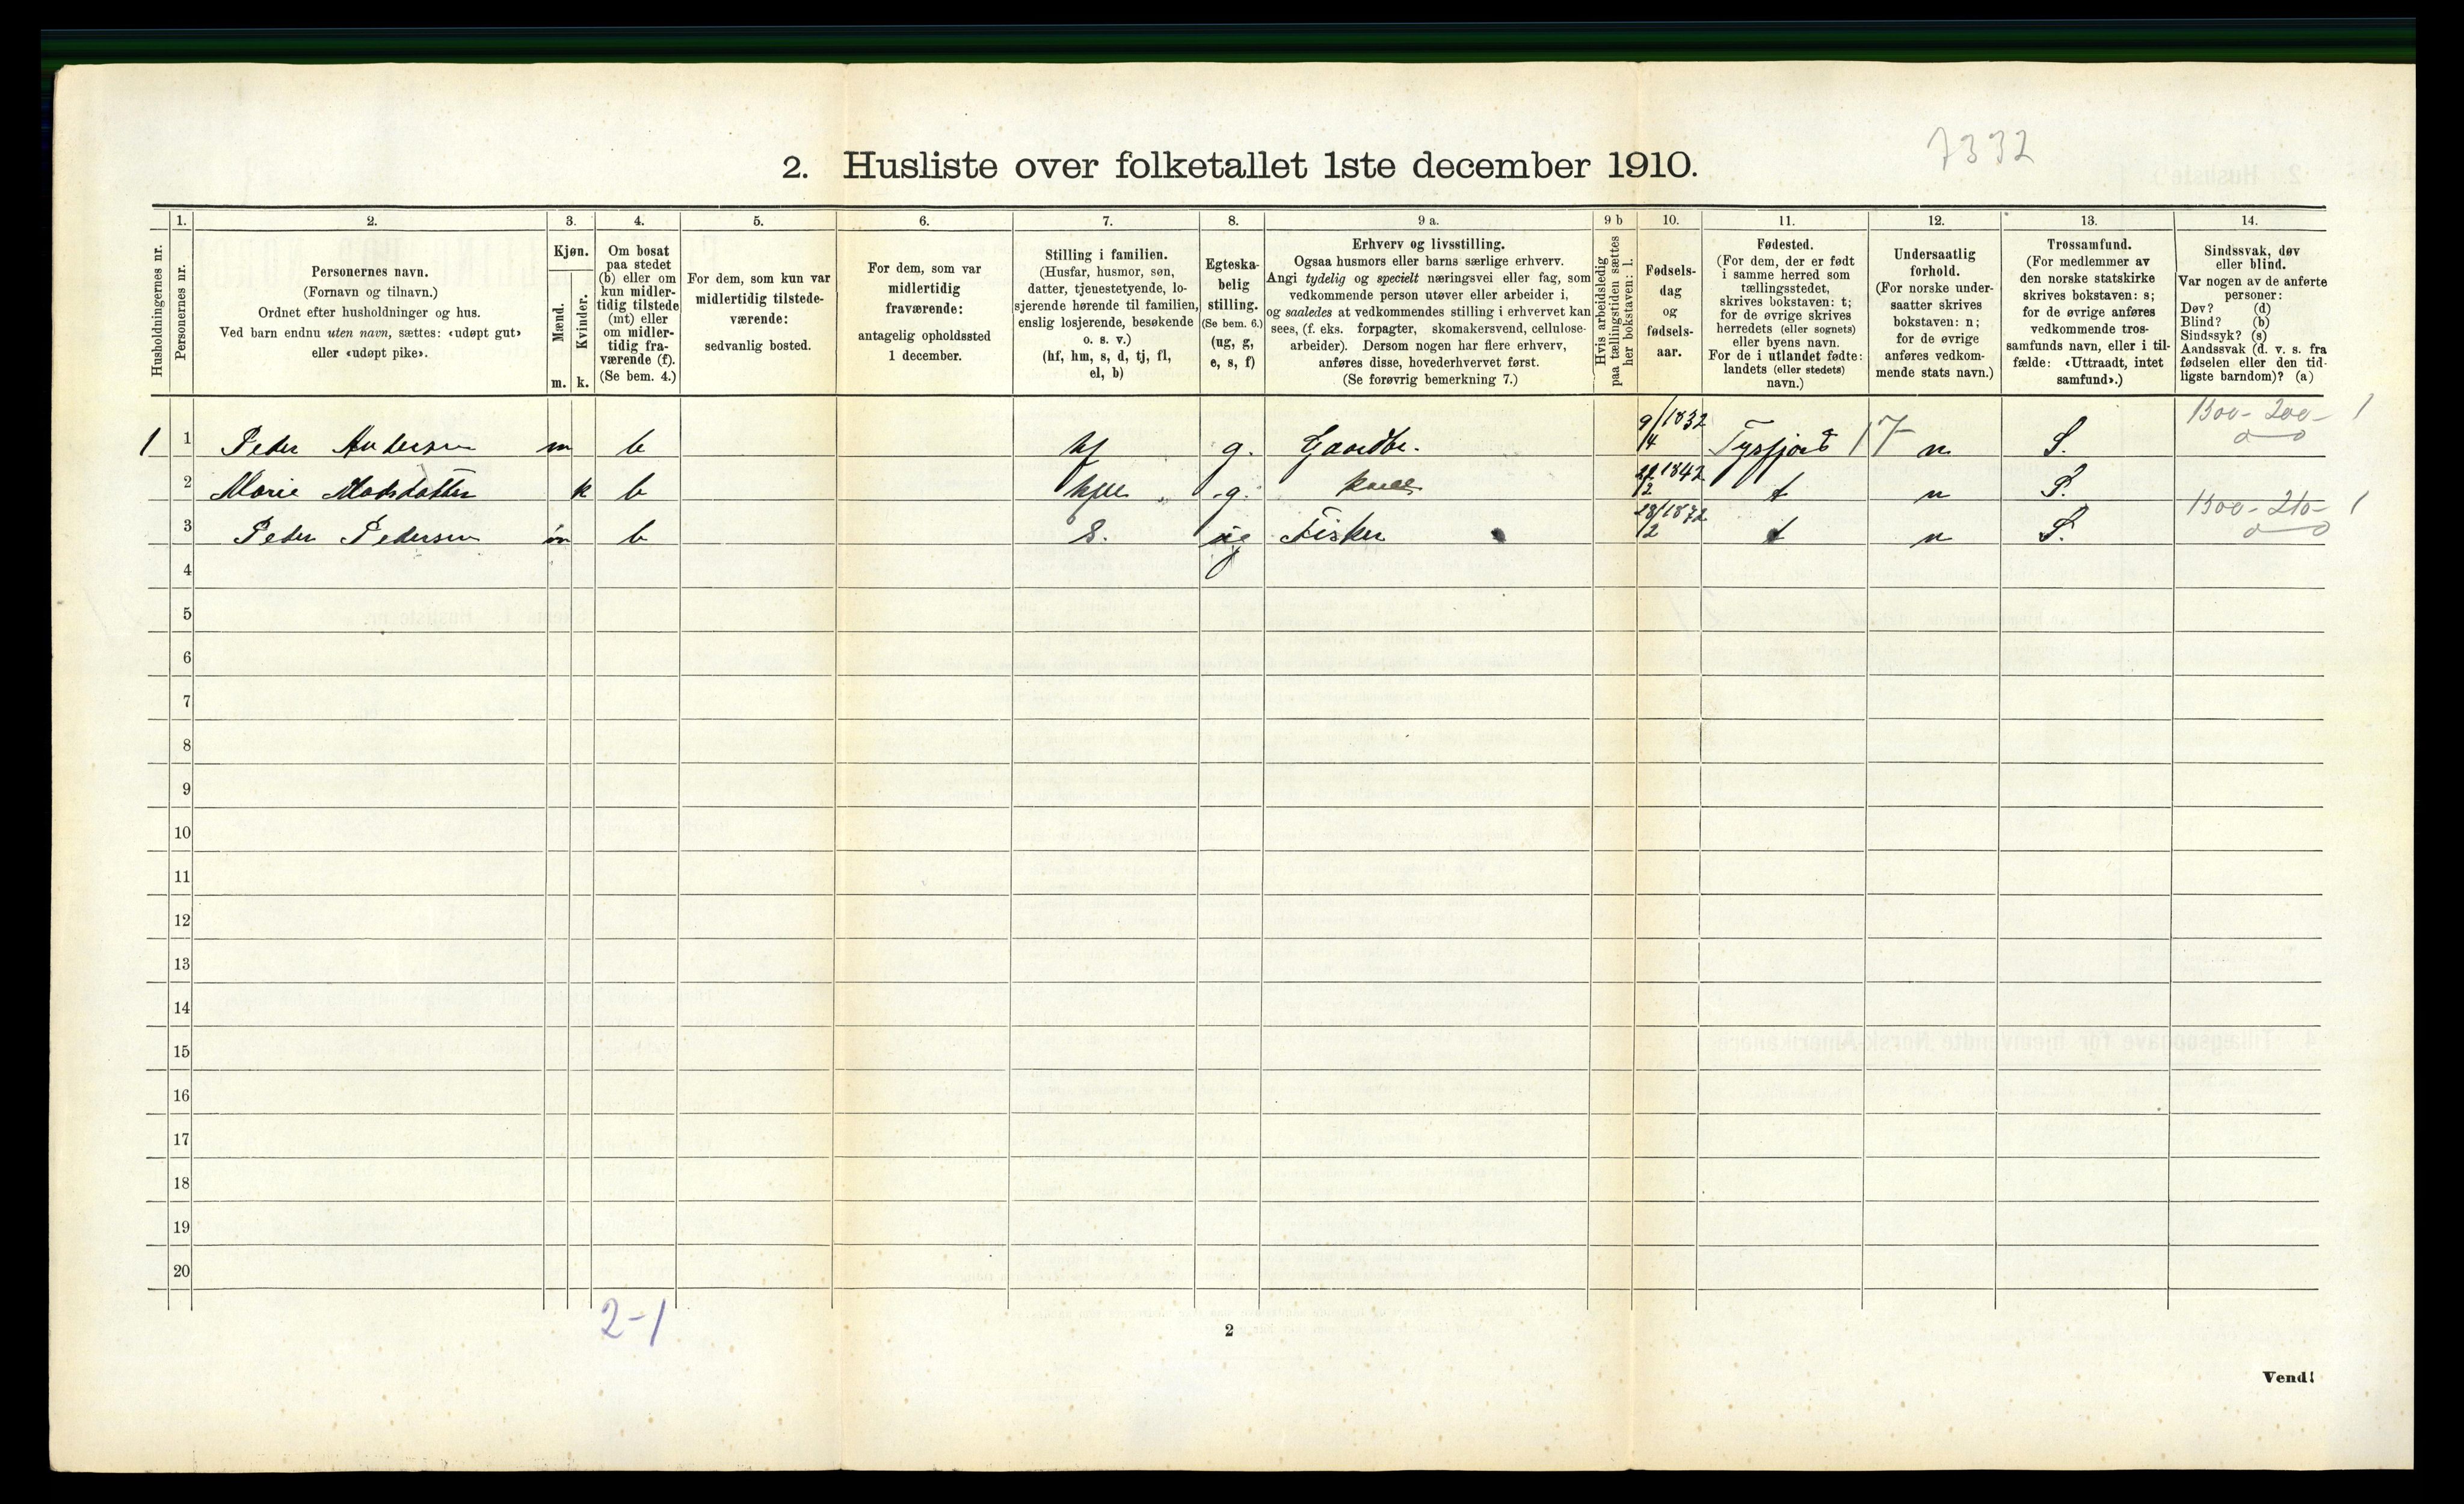 7332
2. Husliste over folketallet 1ste december 1910.
Husholdningernes nr.
1.
Personernes nr.
2.
Personernes navn.
(Fornavn og tilnavn.)
Ordnet efter husholdninger og hus.
Ved barn endnu uten navn, sættes: «udøpt gut»
eller «udøpt pike».
3.
Kjøn.
Mænd.
Kvinder.
m. k.
4.
Om bosat
paa stedet
(b) eller om
kun midler-
tidig tilstede
(mt) eller
om midler-
tidig fra-
værende (f).
(Se bem. 4.)
5.
For dem, som kun var
midlertidig tilstede-
værende:
sedvanlig bosted.
6.
For dem, som var
midlertidig
fraværende:
antagelig opholdssted
1 december.
7.
Stilling i familien.
(Husfar, husmor, søn,
datter, tjenestetyende, lo-
sjerende hørende til familien,
enslig losjerende, besøkende
o. s. v.)
(hf, hm, s, d, tj, fl,
el, b)
8.
Egteska-
belig
stilling.
(Se bem. 6.)
(ug, g,
e, s, f)
9 a.
Erhverv og livsstilling.
Ogsaa husmors eller barns særlige erhverv.
Angi tydelig og specielt næringsvei eller fag, som
vedkommende person utøver eller arbeider i,
og saaledes at vedkommendes stilling i erhvervet kan
sees, (f. eks. forpagter, skomakersvend, cellulose-
arbeider). Dersom nogen har flere erhverv,
anføres disse, hovederhvervet først.
(Se forøvrig bemerkning 7.)
9 b
Hvis arbeidsledig
paa tællingstiden sættes
her bokstaven: l.
10.
Fødsels-
dag
og
fødsels-
aar.
11.
Fødested.
(For dem, der er født
i samme herred som
tællingsstedet,
skrives bokstaven: t;
for de øvrige skrives
herredets (eller sognets)
eller byens navn.
For de i utlandet fødte:
landets (eller stedets)
navn.)
12.
Undersaatlig
forhold.
(For norske under-
saatter skrives
bokstaven: n;
for de øvrige
anføres vedkom-
mende stats navn.)
13.
Trossamfund.
(For medlemmer av
den norske statskirke
skrives bokstaven: s;
for de øvrige anføres
vedkommende tros-
samfunds navn, eller i til-
fælde: «Uttraadt, intet
samfund».)
14.
Sindssvak, døv
eller blind.
Var nogen av de anførte
personer:
Døv? (d)
Blind? (b)
Sindssyk? (s)
Aandssvak (d. v. s. fra
fødselen eller den tid-
ligste barndom)? (a)
1 1 Peder Andersen m b hf g. Gaardbr. 9/4 1832 Tysfjord 17 n S. 1300- 200- 1
2 Marie Madsdatter k b g. 1842 t n S.
3 Peder Pedersen m b S. ug Fisker 1872 t n S. 1300- 210- 1
4
5
6
7
8
9
10
11
12
13
14
15
16
17
18
19
20
2-1
2
Vend!